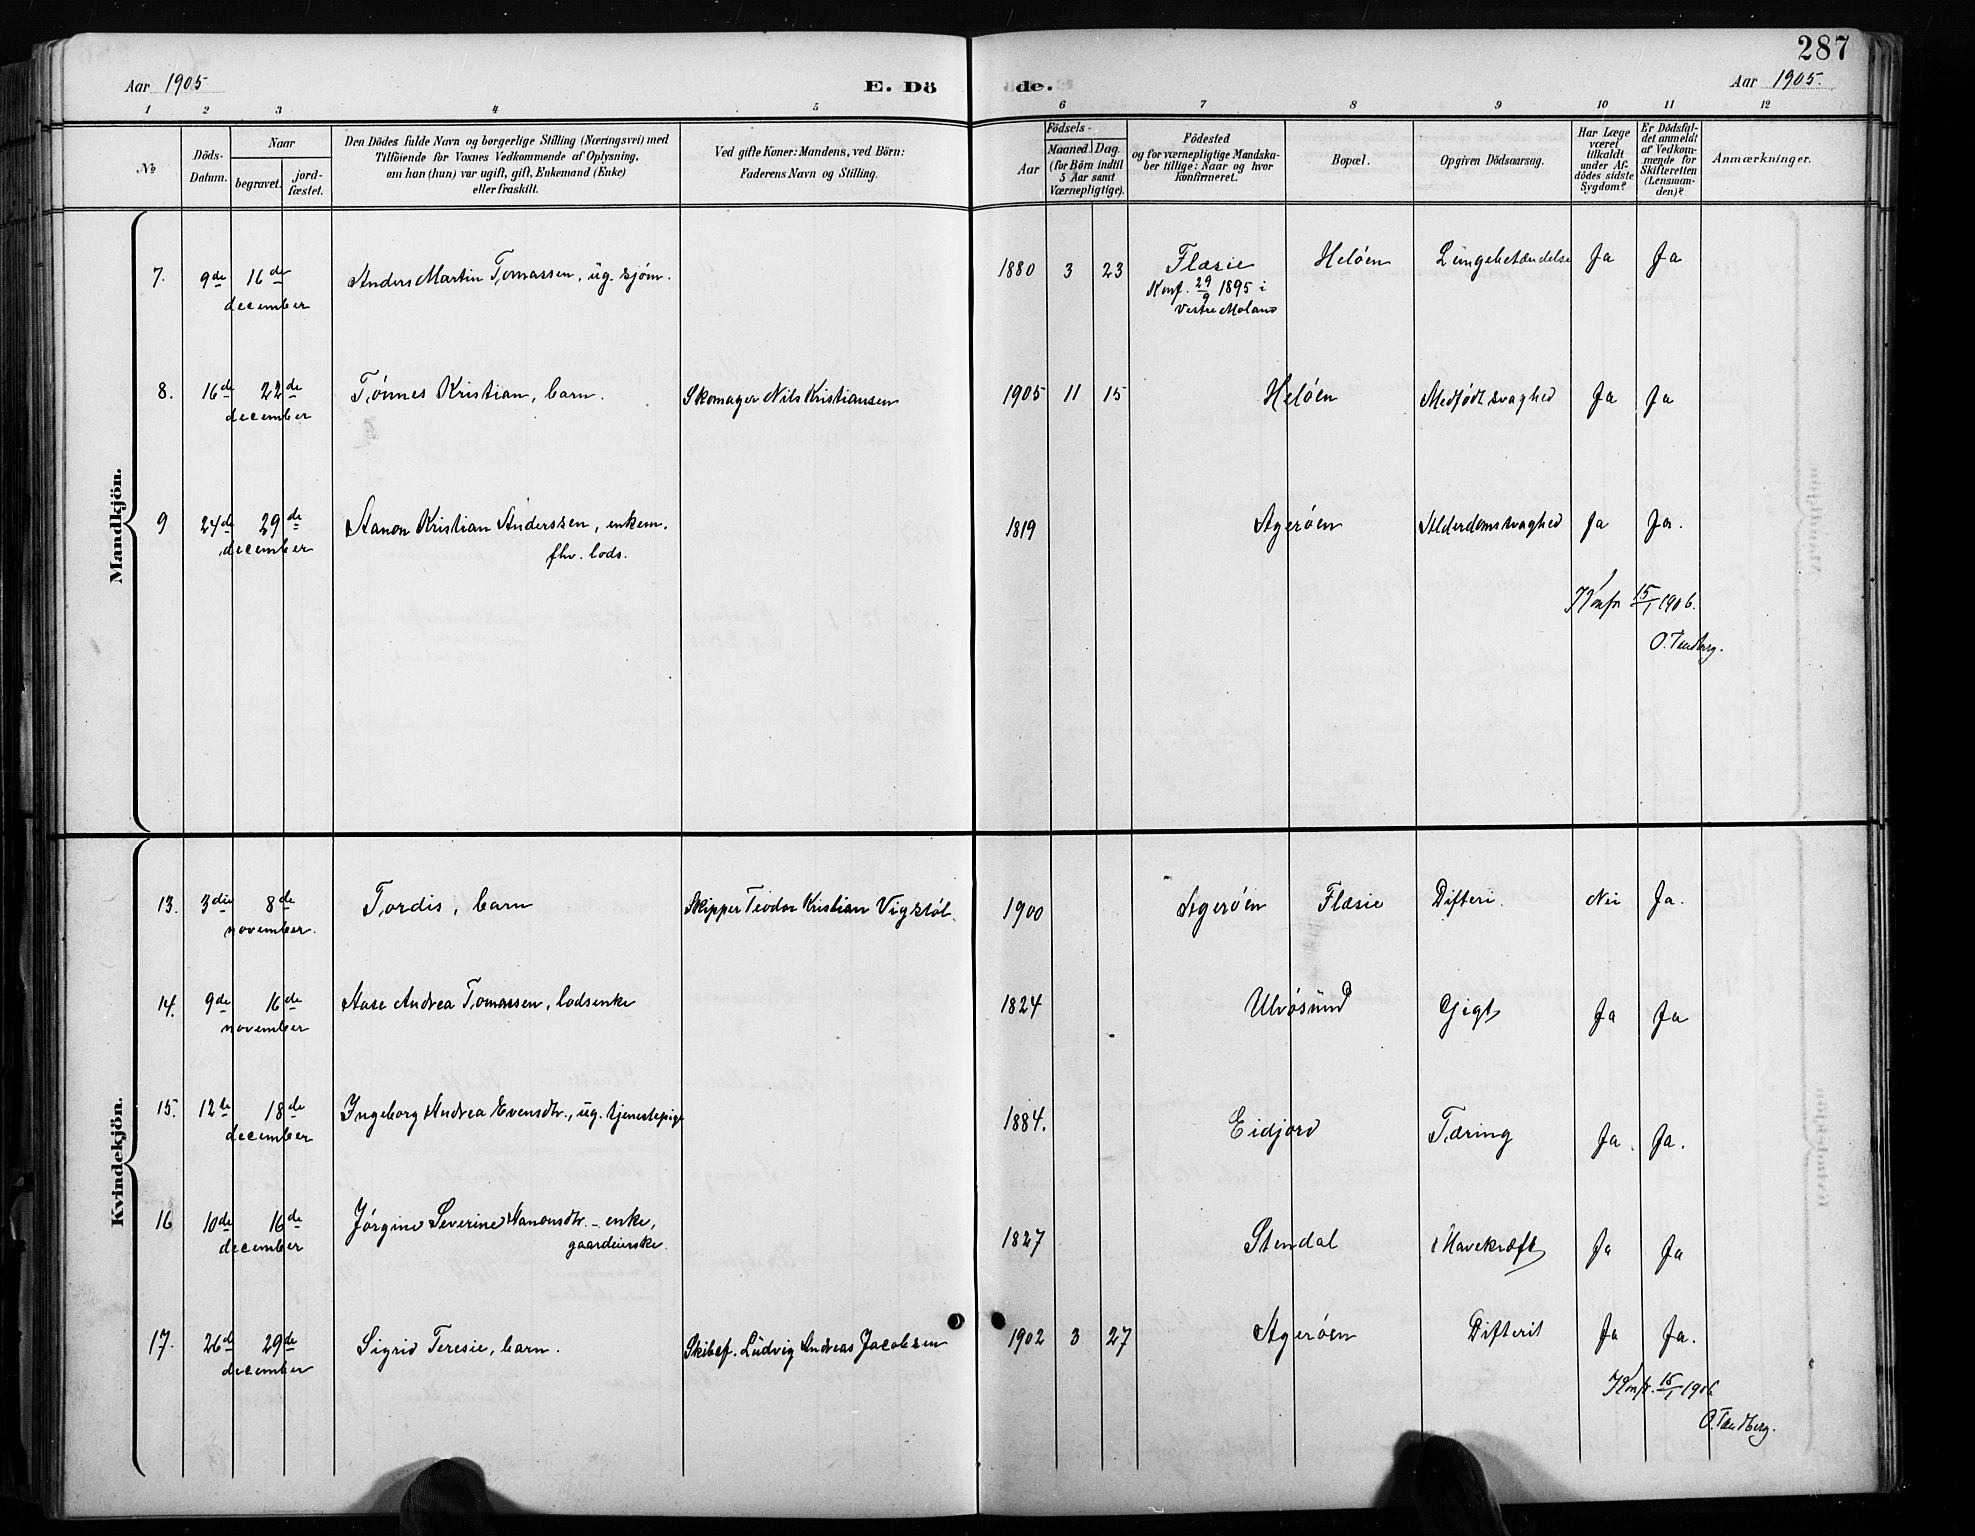 287
Aar 1905 E. Dö de. Aar 1905.
1 2 3 4 5 6 7 8 9 10 11 12
No
Döds-
Datum.
Naar
begravet.
jord-
fæstet.
Den Dödes fulde Navn og borgerlige Stilling (Næringsvei) med
Tilföiende for Voxnes Vedkommende af Oplysning,
om han (hun) var ugift, gift, Enkemand (Enke)
eller fraskilt.
Ved gifte Koner: Mandens, ved Börn:
Faderens Navn og Stilling.
Födsels-
Aar
Maaned. Dag.
(for Börn indtil
5 Aar samt
Værnepligtige).
Födested
og for værnepligtige Mandska-
ber tillige: Naar og hvor
konfirmeret.
Bopæl.
Opgiven Dödsaarsag.
Har Læge
været
tilkaldt
under Af-
dödes sidste
Sygdom?
Er Dödsfal-
det anmeldt
af Vedkom-
mende for
Skifteretten
(Lensman-
den)?
Anmærkninger.
Mandkjön.
7. 9de 16de Anders Martin Tomassen, ug. sjøm. 1880 3 23 Flæsie Heløen Lungebetændelse Ja Ja
december
Konf. 29/9 1895 i
Vestre Moland
8. 16de 22de Tønnes Kristian, barn. Skomager Nils Kristiansen 1905 11 15 Heløen Medfødt svaghed Ja Ja
december
9 24de 29de Aanon Kristian Anderssen, enkem. 1819 Agerøen Alderdomssvaghed Ja Ja.
december
fhv. lods.
Konfr 15/1 1906.
O. Tandberg.
Kvindekjön.
13. 3die 8de Tordis, barn Skipper Teodor Kristian Vigstøl. 1900 Agerøen Flæsie Difteri. Nei Ja.
november.
14. 9de 16de Aase Andrea Tomassen, lodsenke 1824 Ulvøsund Gigt Ja Ja
november
15. 12te 18de Ingeborg Andrea Evensdtr., ug. tjenestepige 1884. Eidjord Tæring Ja. Ja.
december
16 10de 16de Jørgine Severine Aanonsdtr. - enke, 1827 Stendal Mavekræft Ja Ja
december
gaardeierske.
17. 26de 29de Sigrid Teresie, barn. Skibsf. Ludvig Andreas Jacobsen 1902 3 27 Agerøen Difterit Ja Ja.
december
Konfr. 15/1 1906
O. Tandberg.